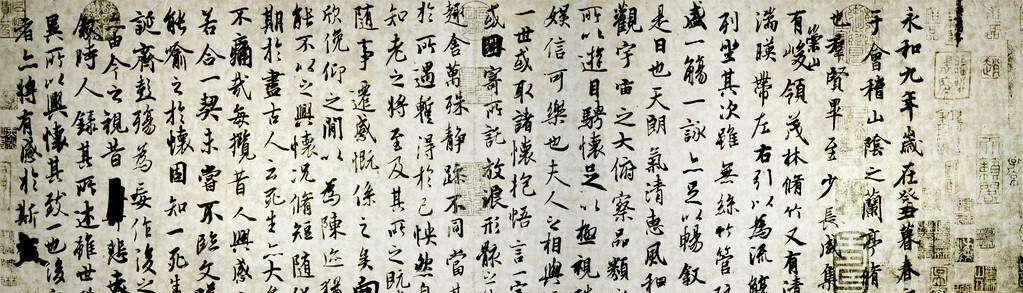 永和九年歲在癸丑暮春
于會稽山陰之蘭亭脩
也羣賢畢至少長咸集
有崇山峻領茂林脩竹又有清
湍暎帶左右引以為流觴
列坐其次雖無絲竹管
盛一觴一詠亦足以暢敘
是日也天朗氣清惠風和
觀宇宙之大俯察品類
所以遊目騁懷足以極視
娛信可樂也夫人之相與
一世或取諸懷抱悟言一
或因寄所託放浪形骸之
趣舍萬殊靜躁不同當其
於所遇蹔得於己怏然自
知老之將至及其所之既
隨事遷感慨係之矣向
欣俛仰之間以為陳迹猶
能不以之興懷況脩短隨
期於盡古人云死生亦大矣
不痛哉每攬昔人興感
若合一契未嘗不臨文嗟
能喻之於懷固知一死生
誕齊彭殤為妄作後之
由今之視昔悲夫
敘時人錄其所述雖世
異所以興懷其致一也後之
者亦將有感於斯文